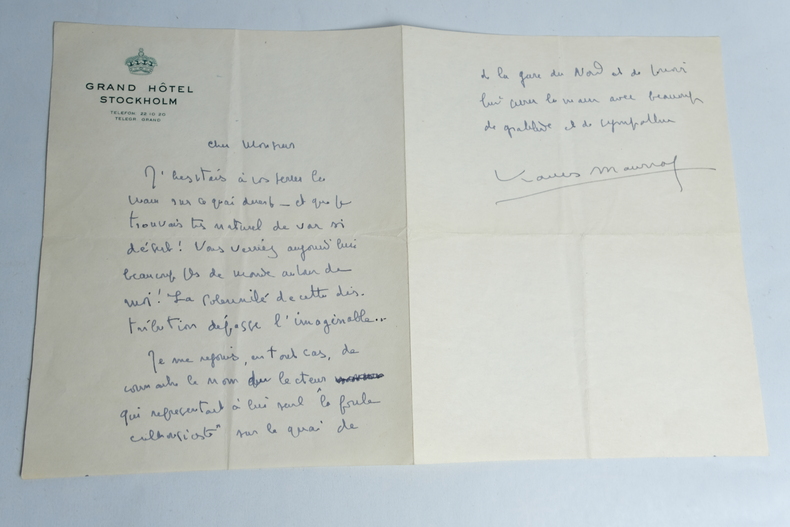 GRAND HÔTEL
STOCKHOLM
TELEFON 22 10 20
TELEGR GRAND
Cher Monsieur
J'hésitais à vous serrer la
main sur ce quai désert – et que je
trouvais très naturel de voir si
désert! Vous verriez aujourd'hui
beaucoup de monde autour de
moi! La solennité de cette dis-
tribution dépasse l'imaginable...
Je me réjouis, en tout cas, de
connaître le nom du lecteur
qui représentait à lui seul "la foule
enthousiaste" sur le quai de
de la gare du Nord et de
lui serrer la main avec beaucoup
de gratitude et de sympathie